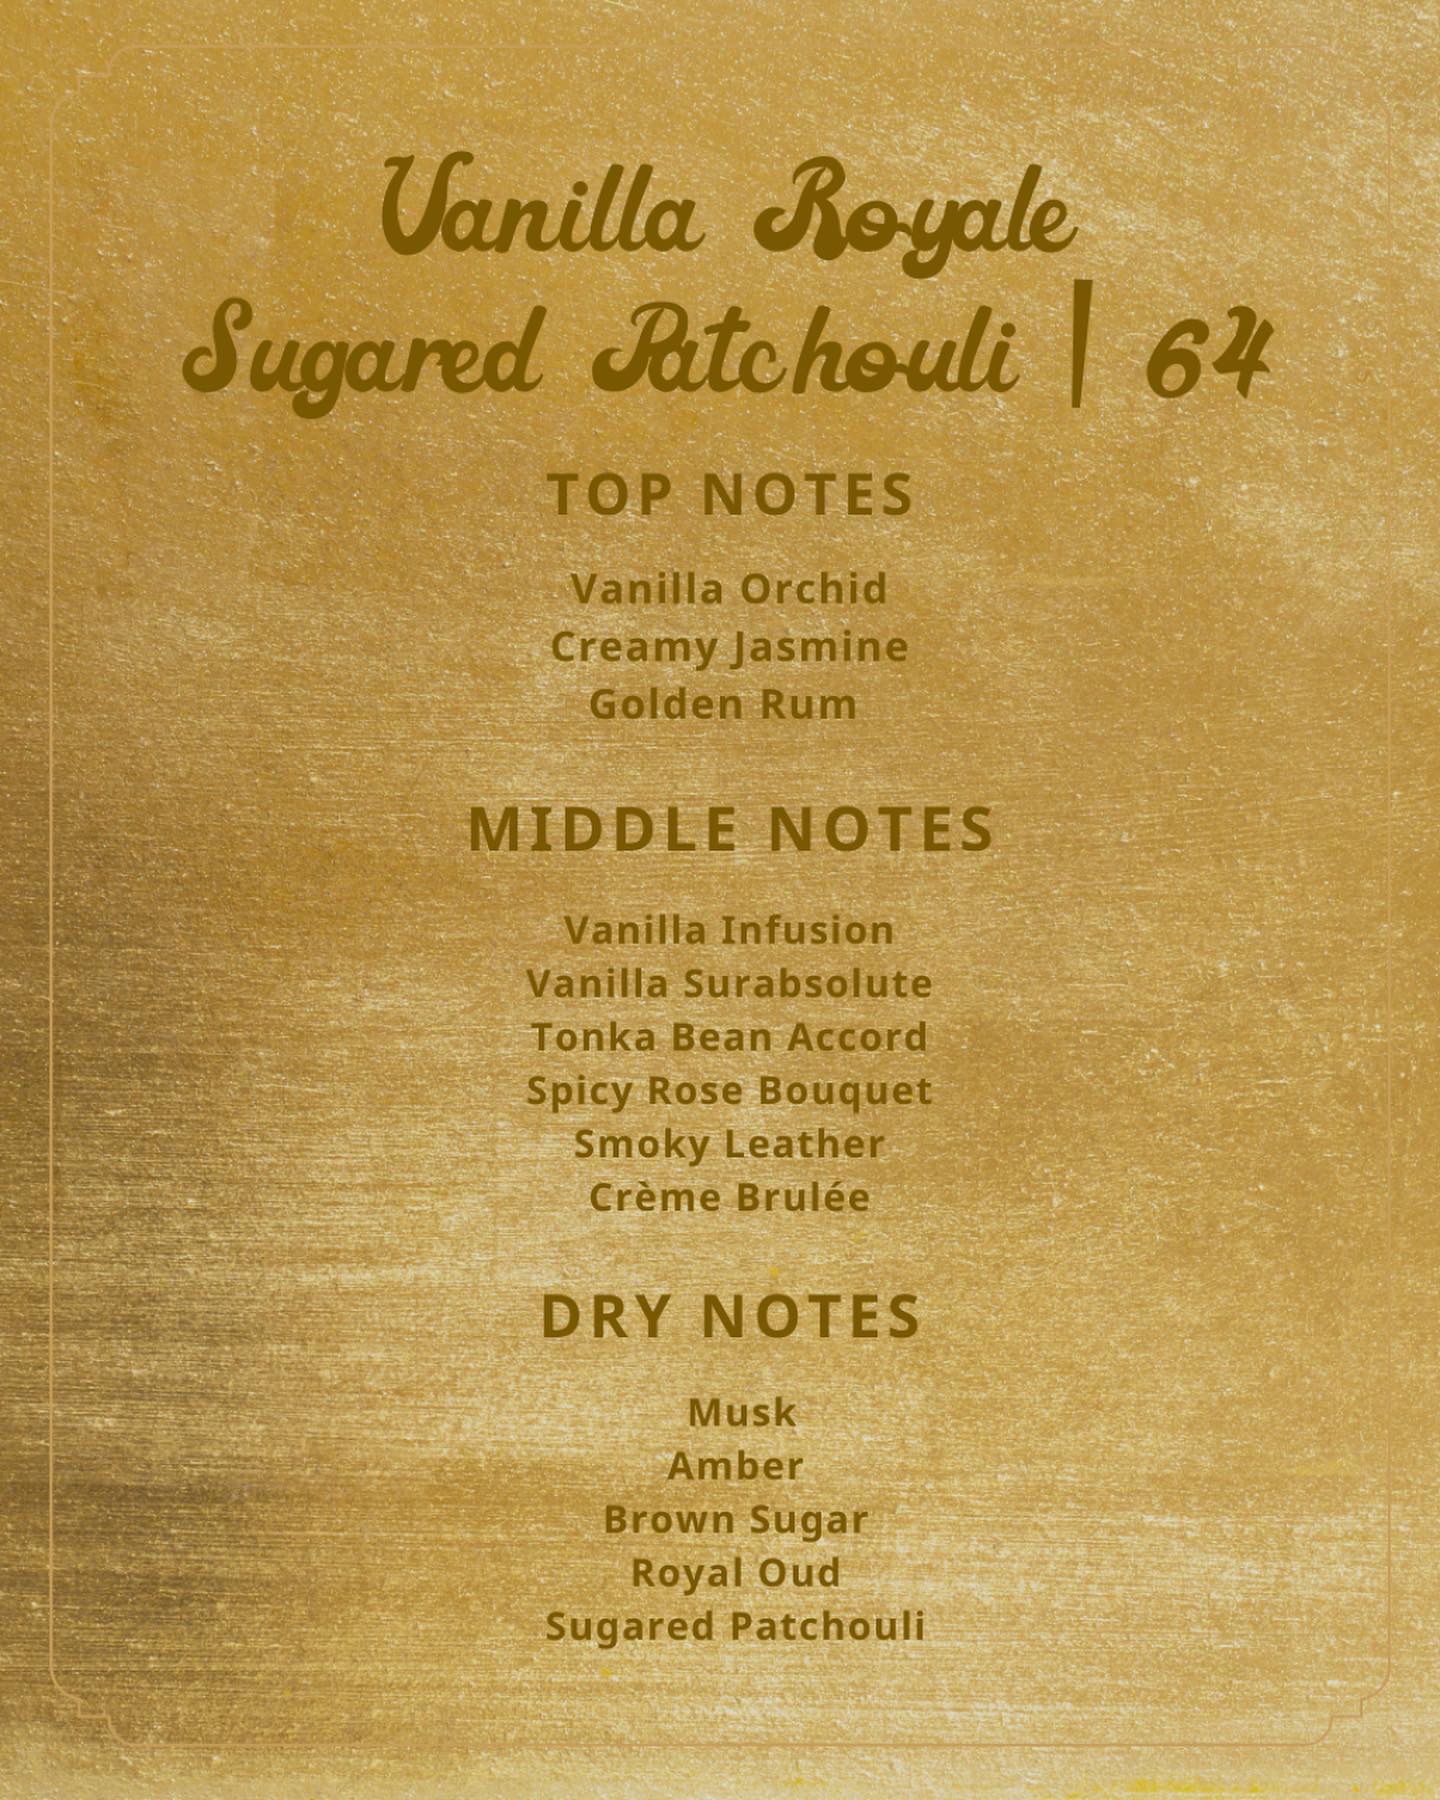 Vanilla Royale
Sugared Patchouli | 64
TOP NOTES
Vanilla Orchid
Creamy Jasmine
Golden Rum
MIDDLE NOTES
Vanilla Infusion
Vanilla Surabsolute
Tonka Bean Accord
Spicy Rose Bouquet
Smoky Leather
Crème Brulée
DRY NOTES
Musk
Amber
Brown Sugar
Royal Oud
Sugared Patchouli